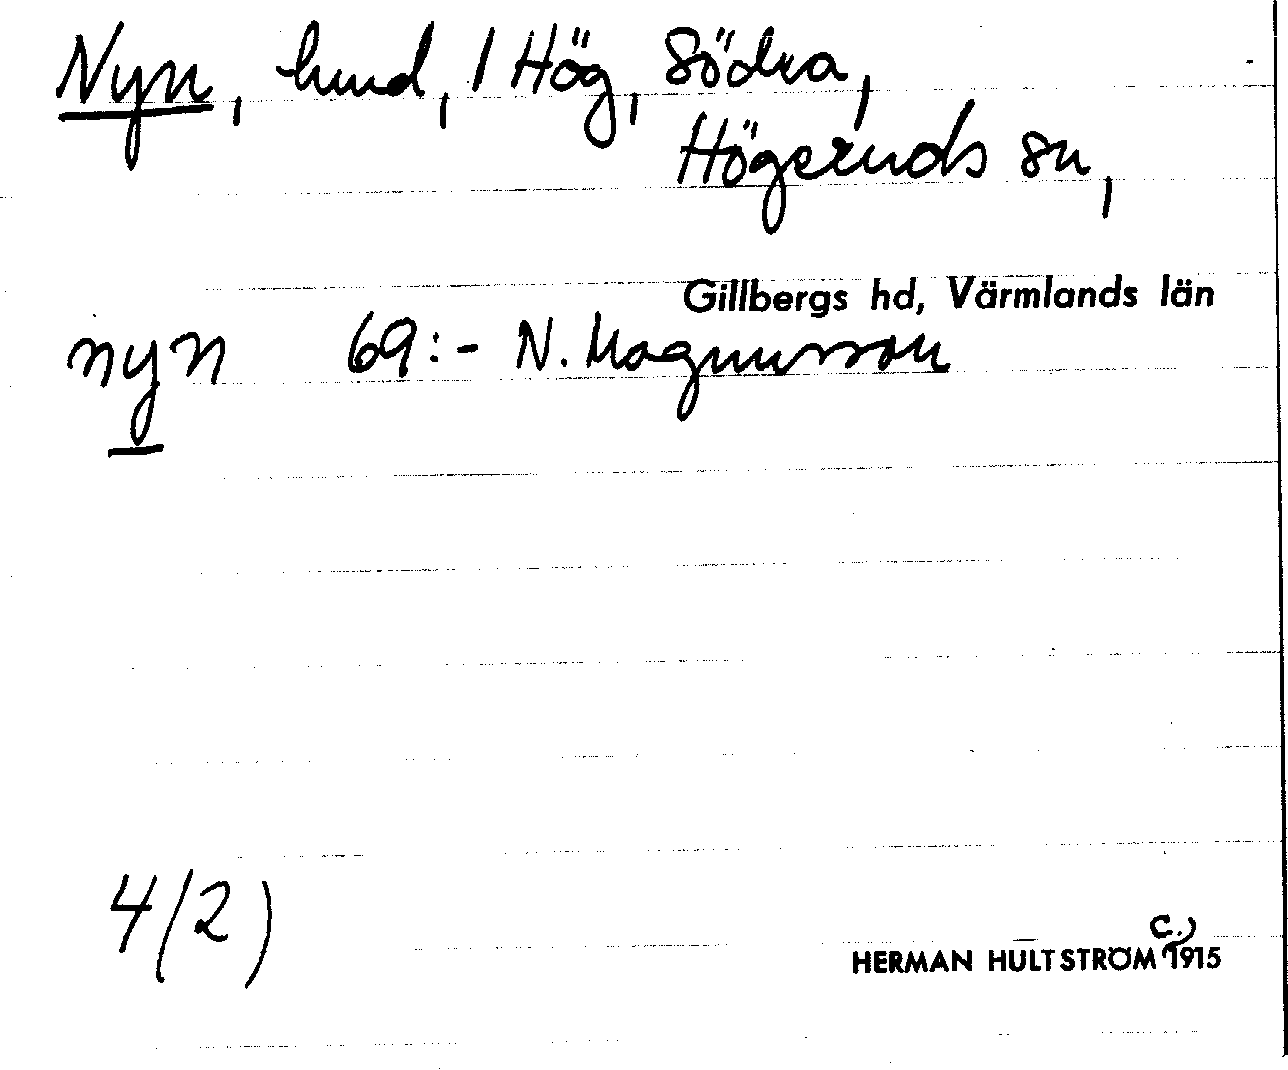 Nyn, hmd, 1 Hög, Södra,
Högeruds sn,
Gillbergs hd, Värmlands län
nyn 69:- N. Magnusson
4/2)
C.)
HERMAN HULTSTRÖM 1915